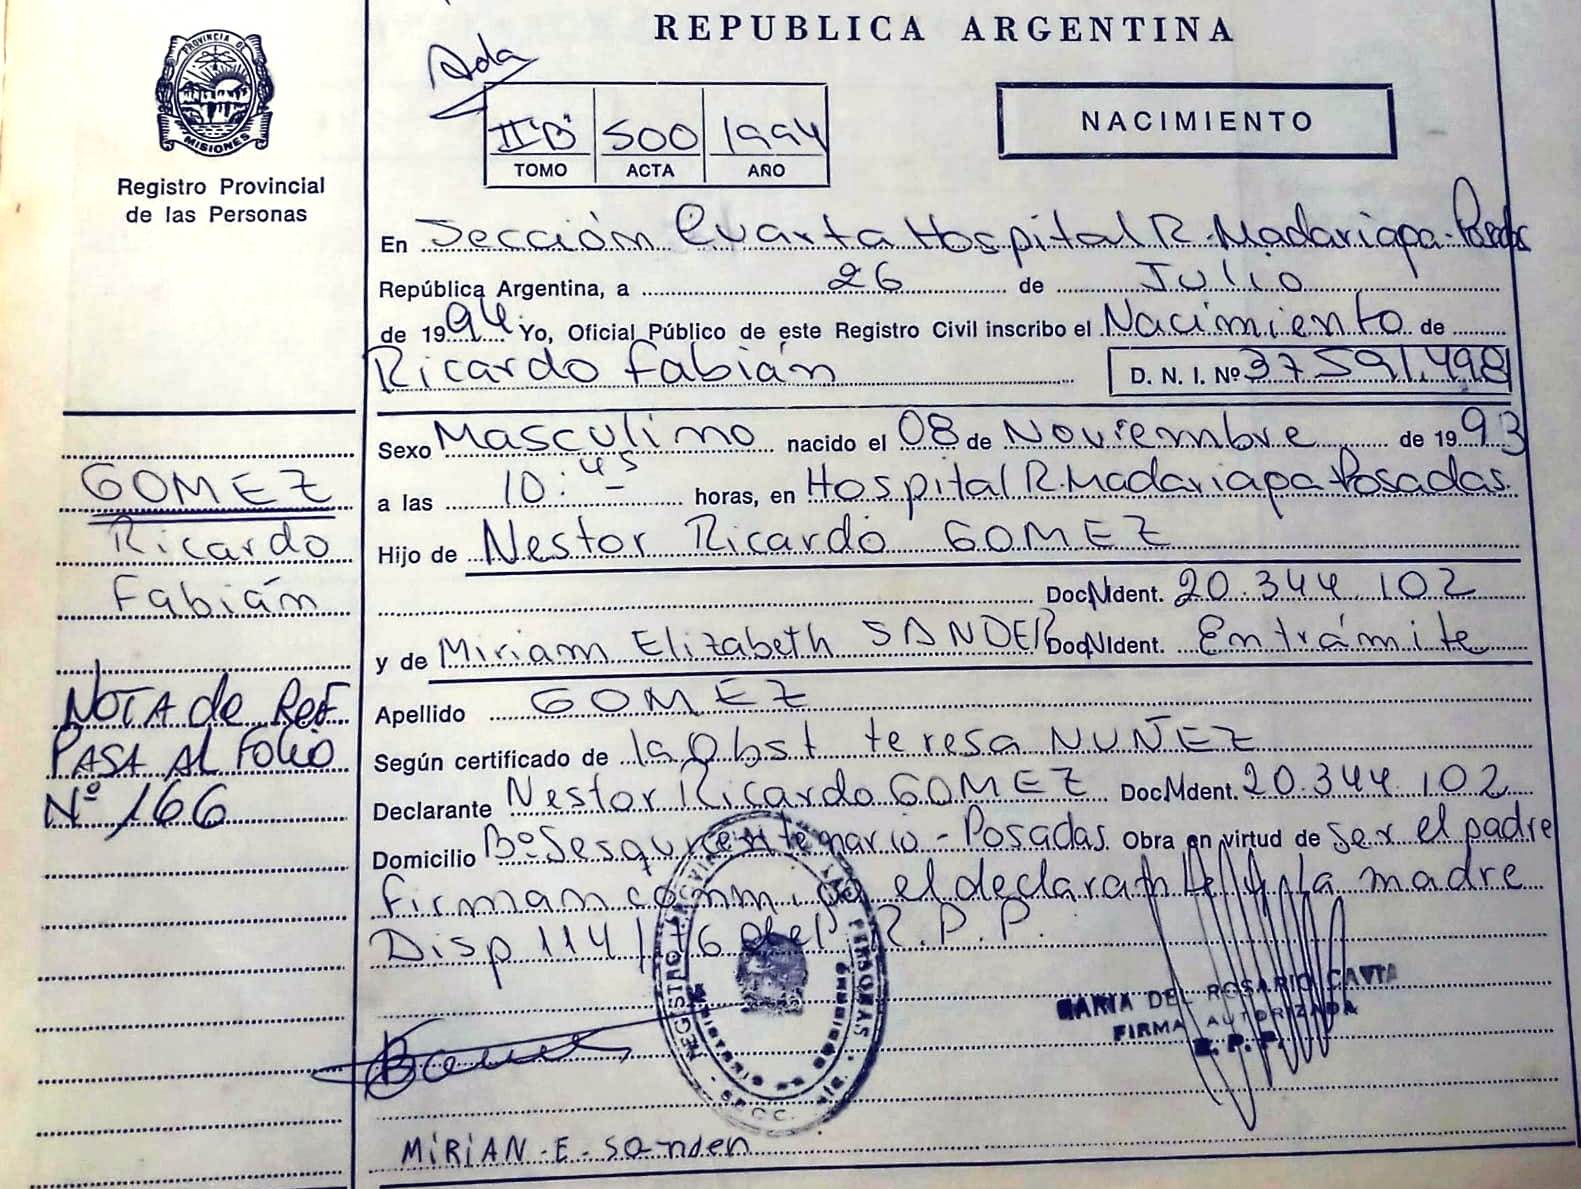 REPUBLICA ARGENTINA
PROVINCIA DE
MISIONES
Registro Provincial
de las Personas
Ada
II"B" 500 1994
TOMO ACTA AÑO
NACIMIENTO
En Sección Cuarta Hospital R. Madariaga - Posadas
República Argentina, a 26 de Julio
de 1994. Yo, Oficial Público de este Registro Civil inscribo el Nacimiento de
Ricardo Fabián D. N. I. Nº 37591.498
Sexo Masculino nacido el 08 de Noviembre de 1993
a las 10:45 horas, en Hospital R. Madariaga Posadas
Hijo de Nestor Ricardo GOMEZ
Doc. N. Ident. 20.344.102
y de Miriam Elizabeth SANDER Doc. N. Ident. En trámite
Apellido GOMEZ
Según certificado de la Obst teresa NUÑEZ
Declarante Nestor Ricardo GOMEZ Doc. N. Ident. 20.344.102
Domicilio Bº Sesquicentenario - Posadas. Obra en virtud de ser el padre
firman conmigo el declarante y la madre
Disp 114/76 del R.P.P.
GOMEZ
Ricardo
Fabián
NOTA de Ref
PASA AL FOLIO
Nº 166
REGISTRO PROVINCIAL DE LAS PERSONAS
MARIA DEL ROSARIO
FIRMA AUTORIZADA
R. P. P.
MiRiAN - E - Sanden